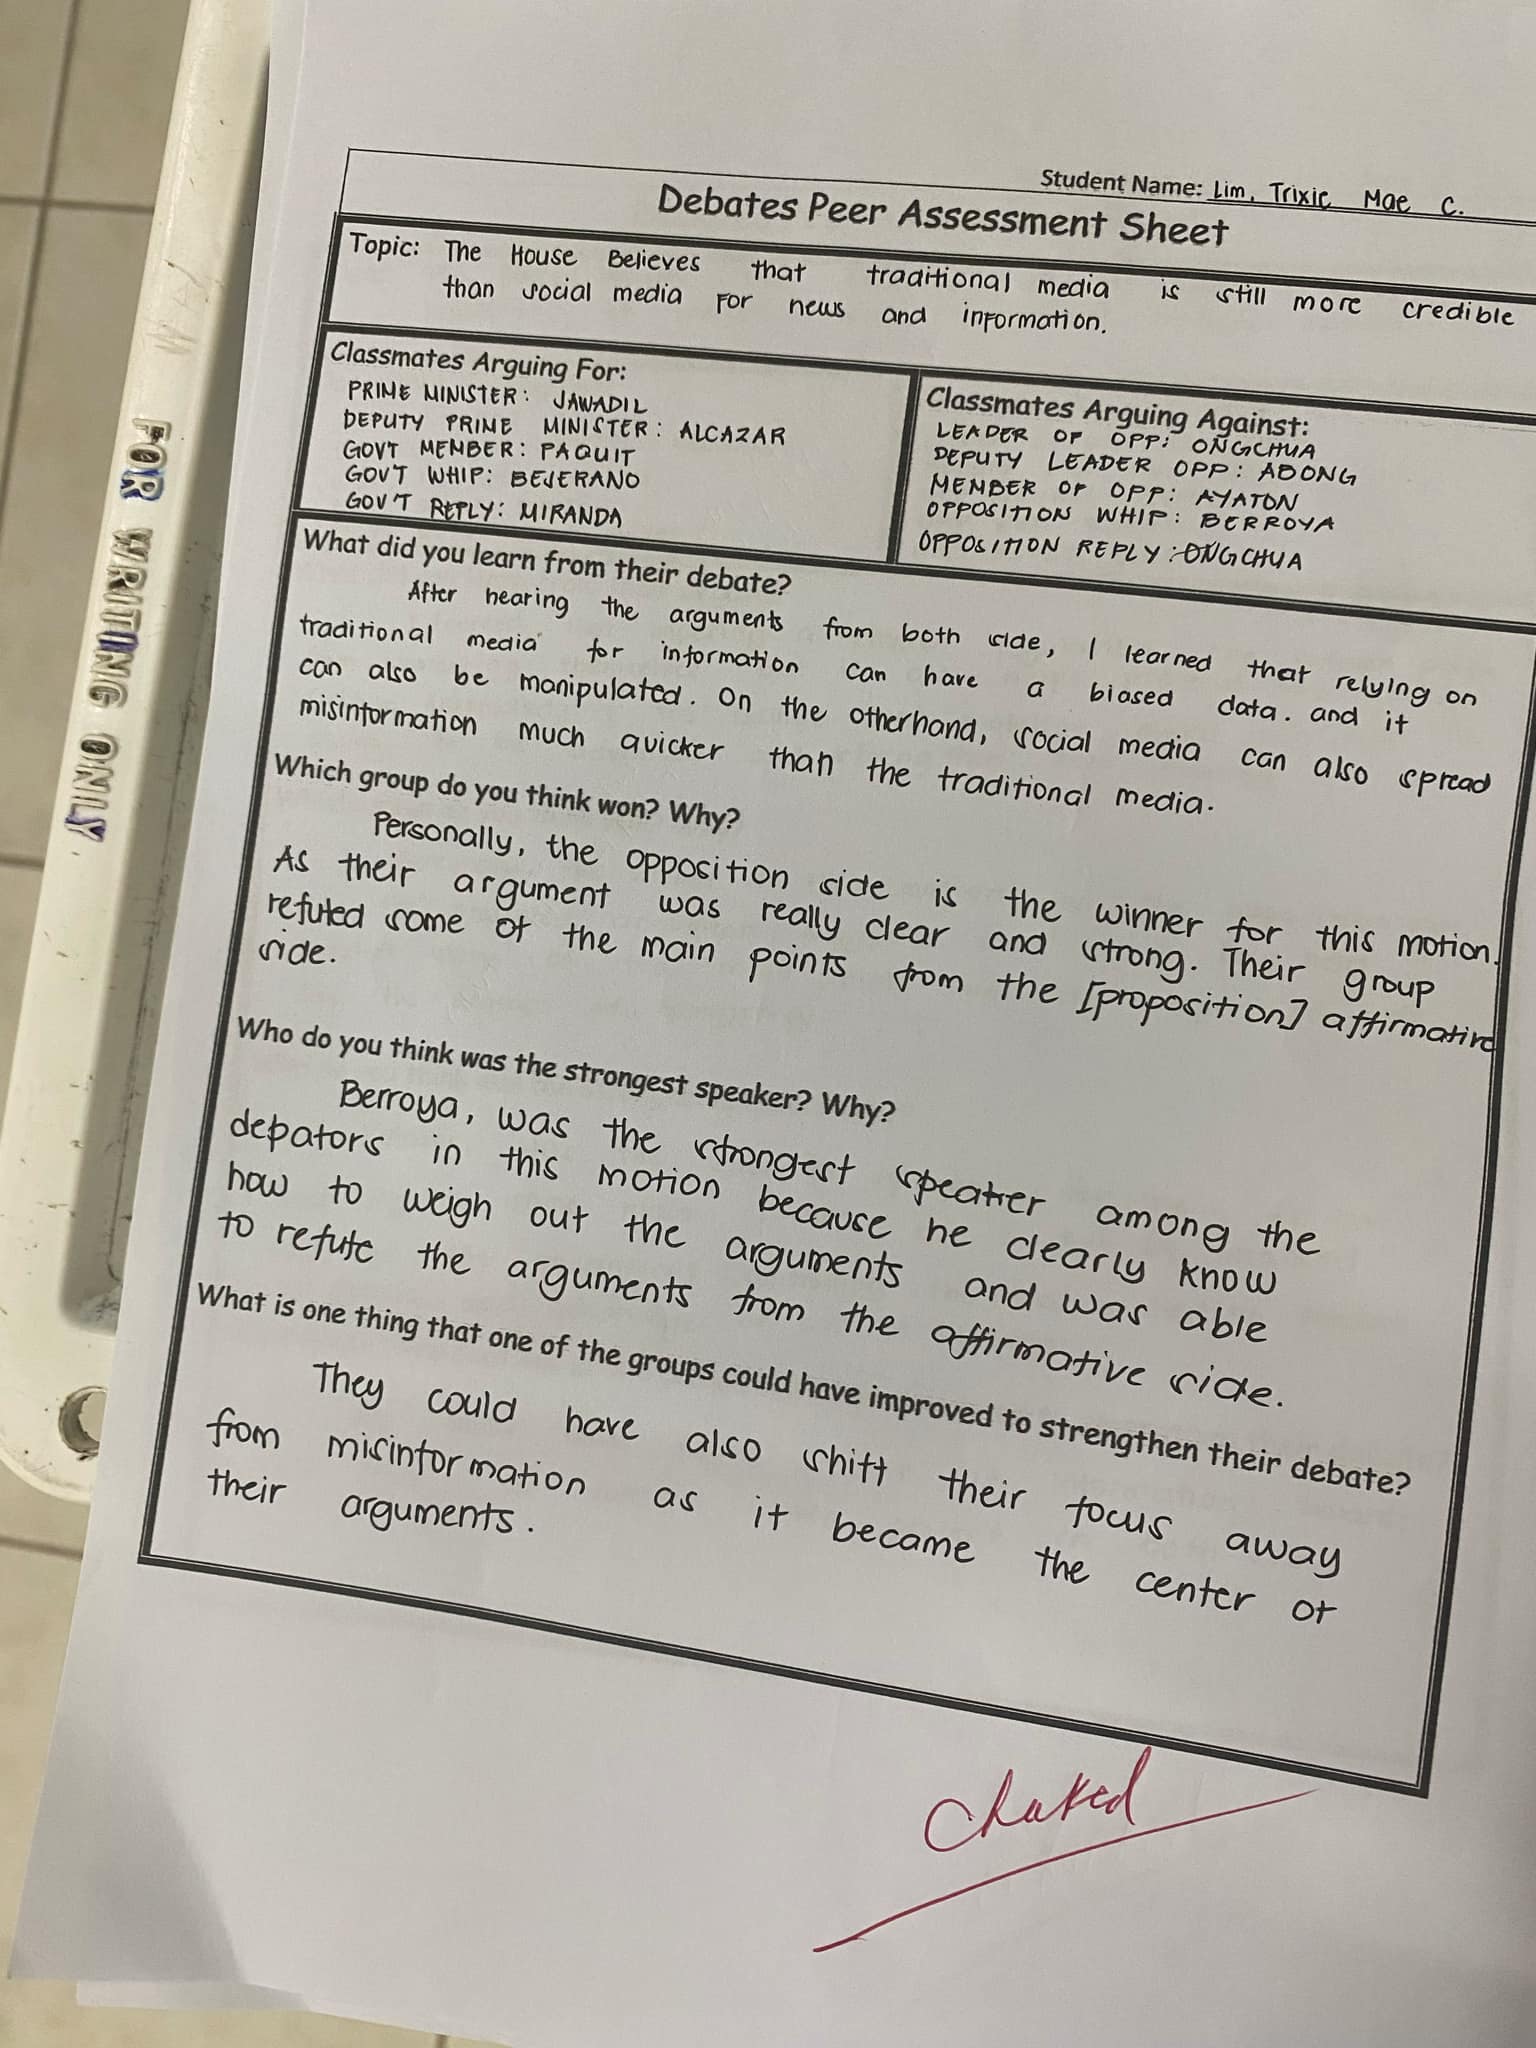 Student Name: Lim, Trixie Mae C.
Debates Peer Assessment Sheet
Topic: The House Believes that traditional media is still more credible
than social media for news and information.
Classmates Arguing For:
PRIME MINISTER: JAWADIL
DEPUTY PRIME MINISTER: ALCAZAR
GOVT MEMBER: PAQUIT
GOV'T WHIP: BEJERANO
GOV'T REPLY: MIRANDA
Classmates Arguing Against:
LEADER OF OPP: ONGCHUA
DEPUTY LEADER OPP: ABONG
MEMBER OF OPP: AYATON
OPPOSITION WHIP: BERROYA
OPPOSITION REPLY: ONGCHUA
What did you learn from their debate?
After hearing the arguments from both side, I learned that relying on
traditional media for information can have a biased data. and it
can also be manipulated. On the otherhand, social media can also spread
misinformation much quicker than the traditional media.
Which group do you think won? Why?
Personally, the opposition side is the winner for this motion.
As their argument was really clear and strong. Their group
refuted some of the main points from the [proposition] affirmative
side.
Who do you think was the strongest speaker? Why?
Berroya, was the strongest speaker among the
debators in this motion because he clearly know
how to weigh out the arguments and was able
to refute the arguments from the affirmative side.
What is one thing that one of the groups could have improved to strengthen their debate?
They could have also shift their focus away
from misinformation as it became the center of
their arguments.
FOR WRITING ONLY